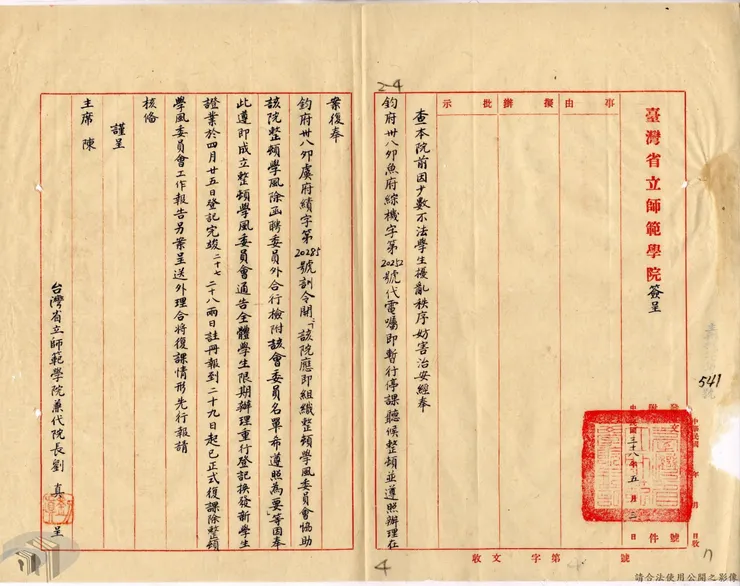 臺灣省立師範學院簽呈
事由
擬辦
批示
541
發文
附
中華民國三十八年五月三日
中華民國 年 月 日收
號
件
收文 字第 號
2-4
查本院前因少數不法學生擾亂秩序妨害治安經奉
鈞府卅八卯魚府綜機字第20252號代電囑即暫行停課聽候整頓並遵照辦理在
4
案復奉
鈞府卅八卯虞府績字第20285號訓令開「該院應即組織整頓學風委員會協助
該院整頓學風除函聘委員外合行檢附該會委員名單希遵照為要」等因奉
此遵即成立整頓學風委員會通告全體學生限期辦理重行登記換發新學生
證業於四月廿五日登記完竣二十七二十八兩日註冊報到二十九日起已正式復課除整頓
學風委員會工作報告另案呈送外理合將復課情形先行報請
核俻
謹呈
主席 陳
台灣省立師範學院兼代院長劉真呈
請合法使用公開之影像